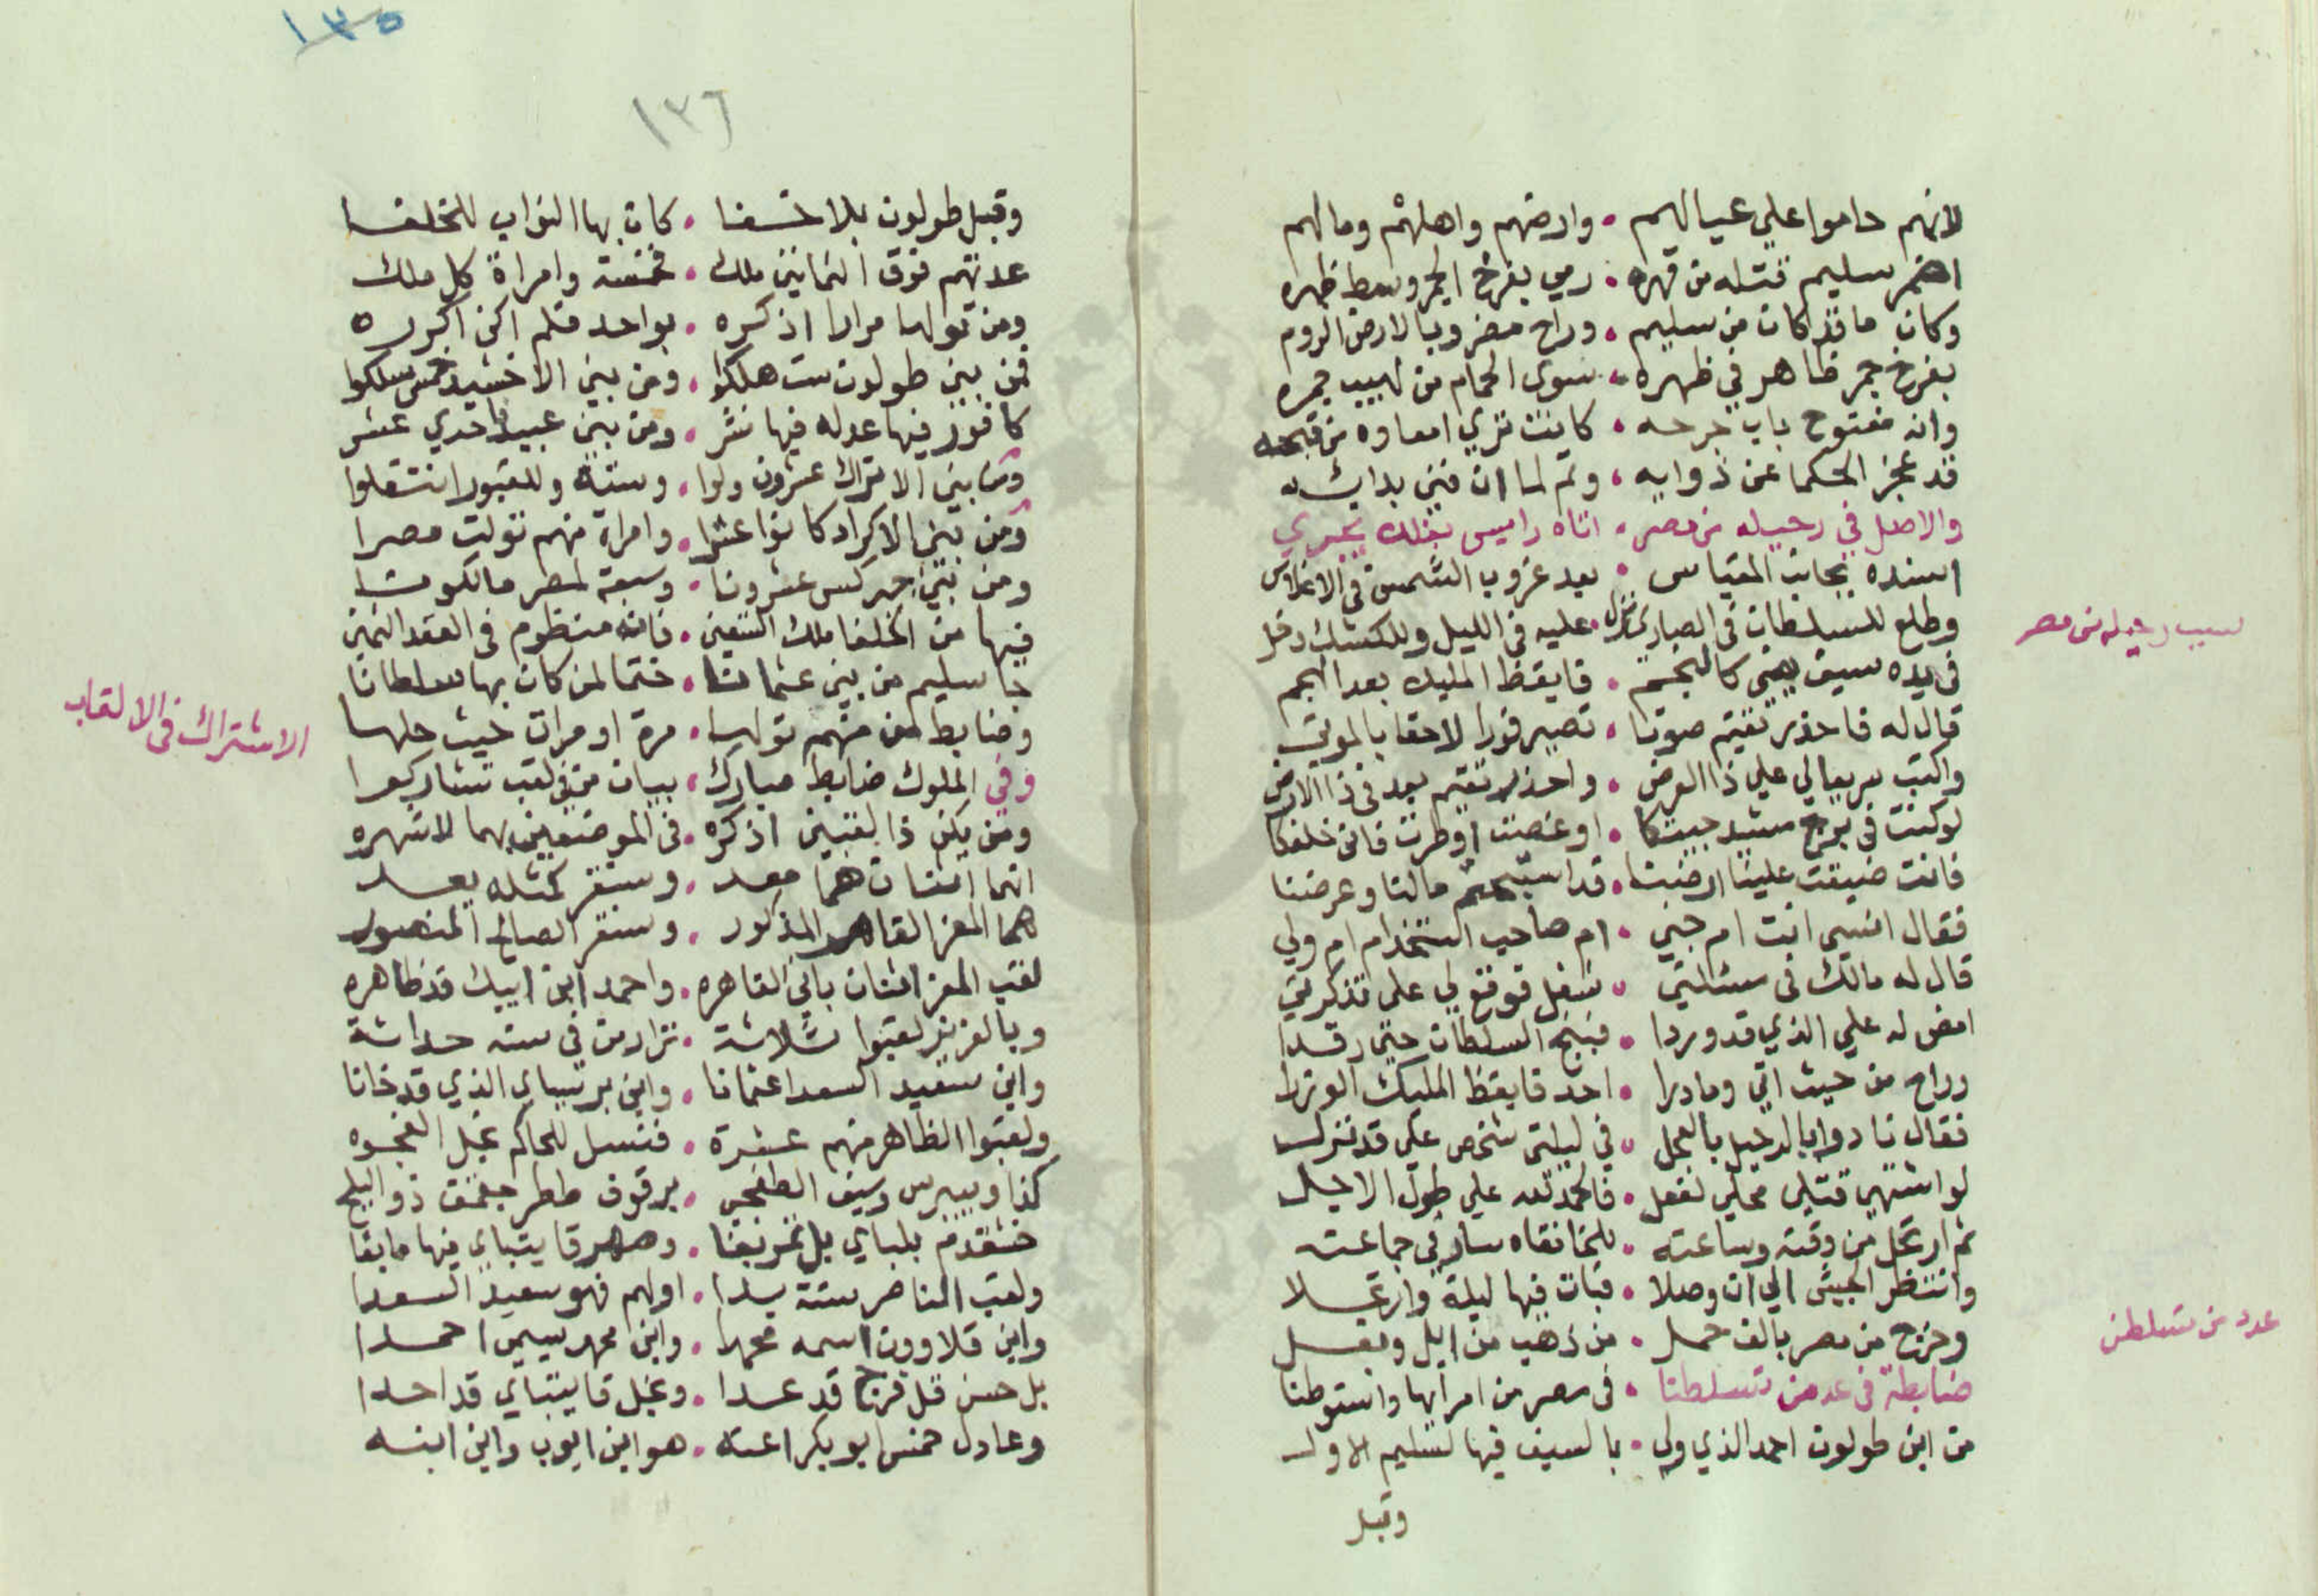 لانهم حاموا علي عيالهم . وارضهم واهلهم ومالهم
سليم قتله من قهره . رمي بفرخ الجمر وسط ظهره
وكان ما قد كان من سليم . وراح مضروبا لارض الروم
بفرخ جمر ظاهر في ظهره . سوى الحمام من لهيب جمره
وانه مفتوح باب جرحه . كاينت تري امعاوه من قبحه
قد عجز الحكما عن دوايه . ولم لما ان فني بدايه
والاصل في رحيله من مصر . اتاه راميس بفلك يجري
اسنده بجانب المقياس . بعد غروب الشمس في الاغلاس
وطلع للسلطان في الصاري نزل . عليه في الليل وللكشك دخل
في يده سيف يضي كالنجم . فايقظ المليك بعد الهجم
قال له فاحذر تقيم صوتا . تصير فورا لاحقا بالموتى
واكتب بريعا لي علي ذا العرض . واحذر تقيم بعد في ذا الارض
لوكنت في برج مشيد جيتكا . او غصت او طرت فاني خلفكا
فانت ضيقت علينا ارضنا . قد استبحتم مالنا وعرضنا
فقال انسي انت ام جني . ام صاحب استخدام ام ولي
قال له مالك في سئالتي . شغل فوقع لي على تذكرتي
امض له علي الذي قد وردا . فبنج السلطان حتى رقدا
وراح من حيث اتي ومادرا . احد فايقظ المليك الوزرا
فقال نادوا بالرحيل بالعجل . في ليلتي شخص علي قد نزل
لو اشتهي قتلي محلي لفعل . فالحمد لله علي طول الاجل
ثم ارتحل من وقته وساعته . للخانقاه سار في جماعته
وانتظر الجيش الي ان وصلا . فبات فيها ليلة وارتحلا
وخرج من مصر بالف حمل . من ذهب من ابل وبغل
ضابطة في عد من تسلطنا . في مصر من امرايها واستوطنا
من ابن طولون احمد الذي ولي . بالسيف فيها لسليم الاول
وقبل
سبب رحيله من مصر
عدد من تسلطن
١٣٥
١٣٦
وقبل طولون بلا خفا . كان بها النواب للخلفا
عدتهم فوق الثمانين ملك . خمسة وامراة كل ملك
ومن تولها مرارا اذكره . بواحد فلم اكن اكرره
فمن بني طولون ست هلكوا . ومن بني الاخشيد خمس سلكوا
كافور فيها عدله فيها نشر . ومن بني عبيد احدي عشر
ومن بني الاتراك عشرون ولوا . وستة وللقبور انتقلوا
ومن بني الاكراد كانوا عشرا . وامراة منهم تولت مصرا
ومن بني جركس عشرونا . وسبعة لمصر مالكونا
فيها من الخلفا ملك اثنين . فانه منظوم في العقد الثمين
جا سليم من بني عثمانا . ختما لمن كان بها سلطانا
وضابط لمن منهم تولها . مرة او مرات حيث حلها
وفي الملوك ضابط مبارك . ببيان من في لقب تشاركوا
ومن يكن ذا لقبين اذكره . في الموضعين بهما لاشهره
انما اثنان هما معد . وسنقر كمثله يعد
هما المعز القاهر المذكور . وسنقر الصالح المنصور
لقب المعز اثنان باني القاهره . واحمد ابن ايبك قد ظاهره
وبالعزيز لقبوا ثلاثة . نزار من في سنه حداثة
وابن سعيد السعدا عثمانا . وابن برسباي الذي قد خانا
ولقبوا الظاهر منهم عشرة . فنسل للحاكم نجل الفجره
كذا وبيبرس وسيف الطغجي . برقوق ططر جقمق ذو البلج
خشقدم بلباي بل تمربغا . وصهر قايتباي فيها ما بقا
ولقب الناصر ستة بدا . اولهم فهو سعيد السعدا
وابن قلاوون اسمه محمدا . وابن محمد سيمي احمدا
بل حسن قل فرج قد عدا . ونجل قايتباي قد احدا
وعادل خمس ابو بكر اعنه . هو ابن ايوب وابن ابنه
الاشتراك في الالقاب